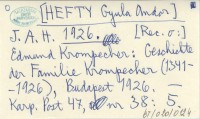 [HEFTY Gyula Andor]
J. A. H. 1926. [Rec. o:]
Edmund Krompecher: Geschichte
der Familie Krompecher (1341-
-1926), Budapest 1926. —
Karp. Post 47, nr 38: 5.